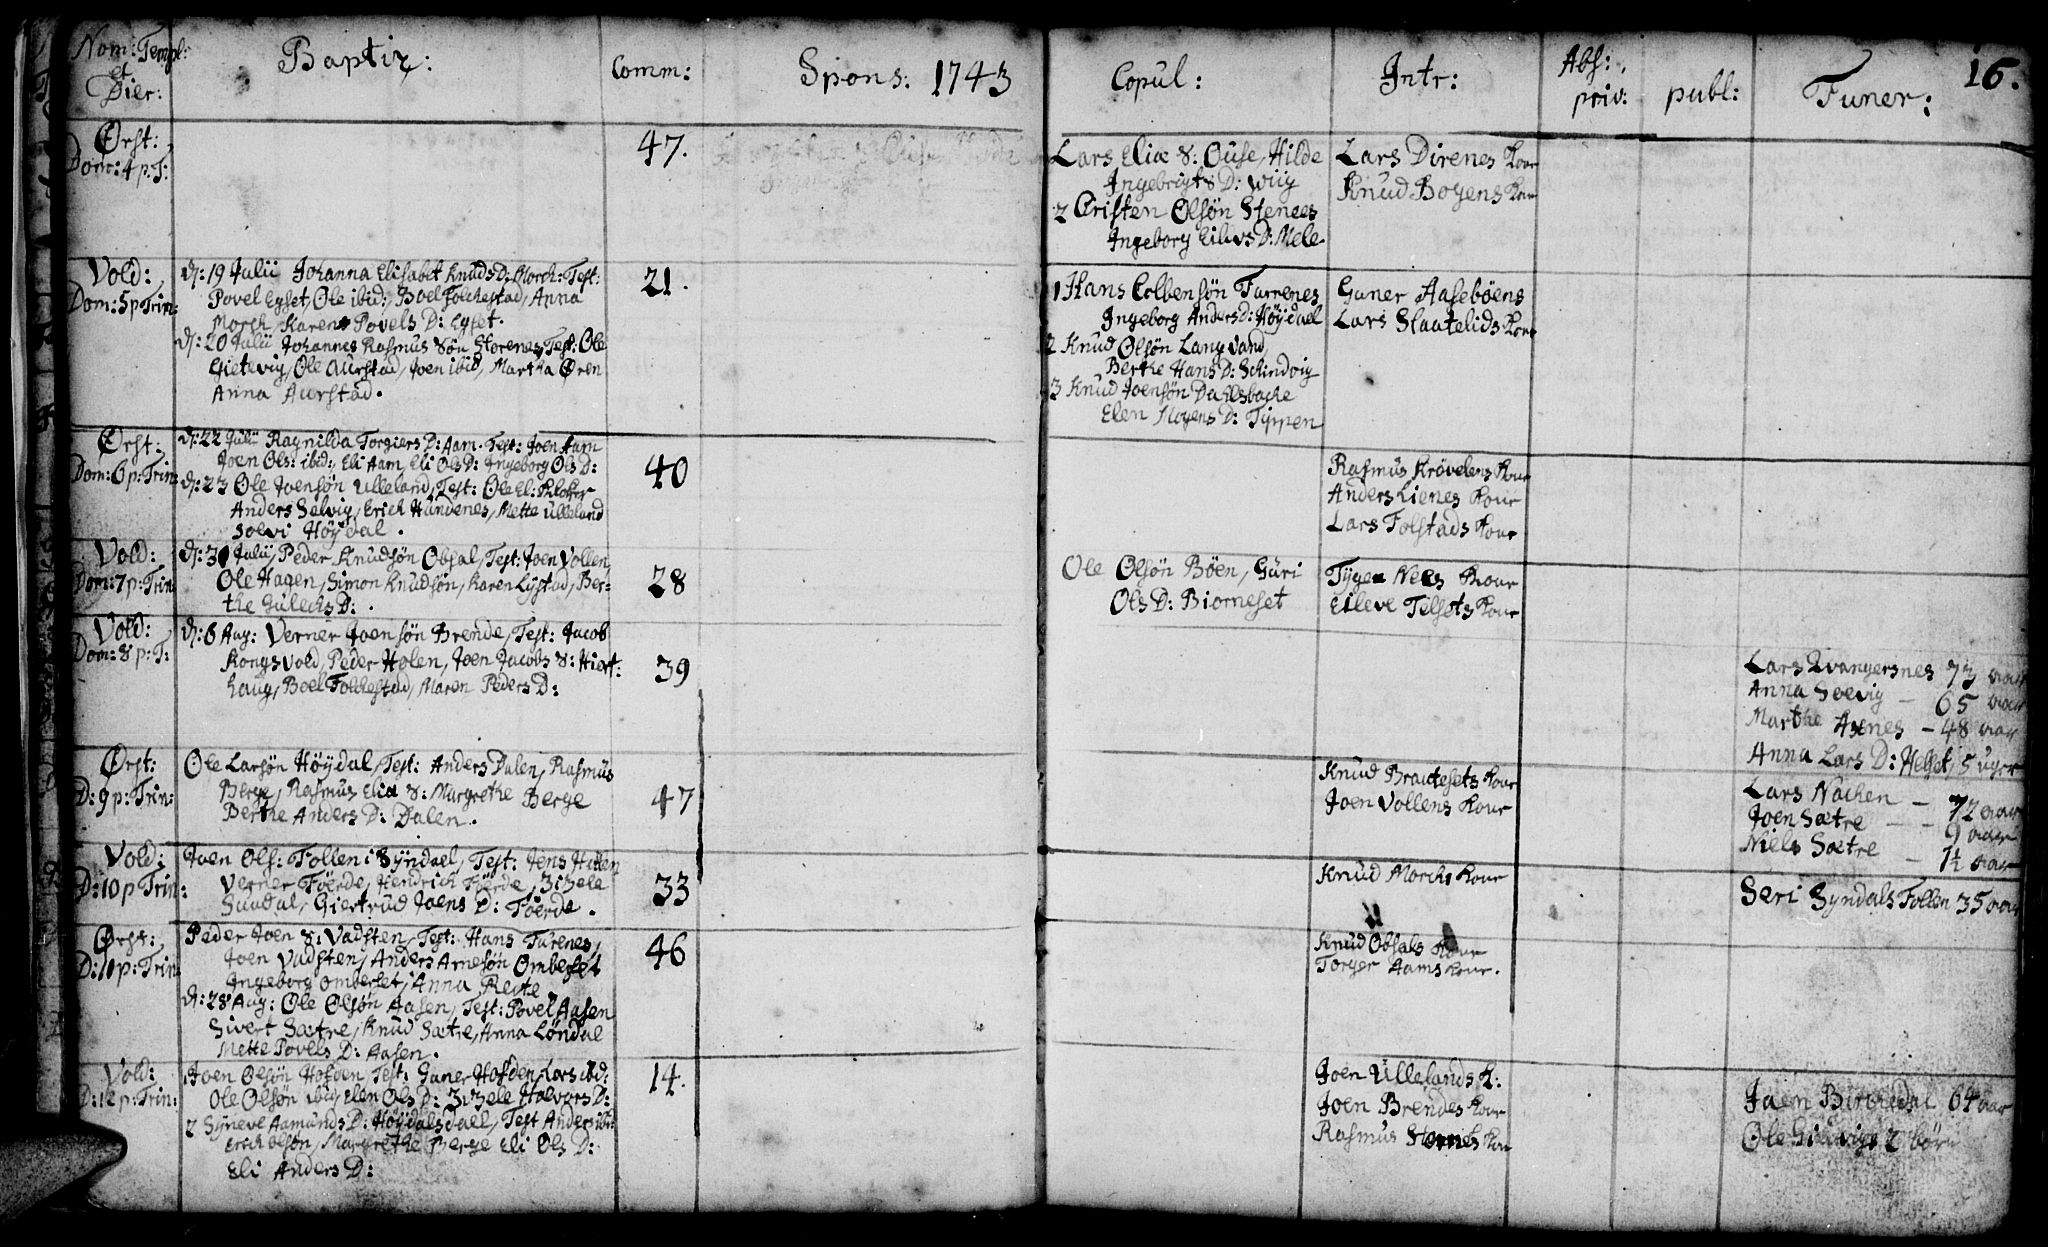 Nom: Templ:
et
Dier:
Baptiz:
Comm:
Spons: 1743
Copul:
Intr:
Abs:
priv:
publ:
Funer:
16.
Ørst:
Dom: 4 p: T:
47.
Lars Eliæ S: Ouse, Hilde
Ingebrigts D: Wiig
2 Cristen Olsøn Stenees
Ingeborg Eilivs D: Mele
Lars Direnes Kone
Knud Bogens Kone
Vold:
Dom: 5 p Trin:
d: 19 Julii Johanna Elisabet Knuds D: Morch: Test:
Povel Eyset, Ole ibid:, Boel Folchestad, Anna
Morch, Karen Povels D: Eyset.
d: 20 Julii Johannes Rasmus Søn Storenes, Test: Ole
Gietevig, Ole Aurstad, Joen ibid, Martha Øren
Anna Aurstad.
21.
1 Hans Colbensøn Furrenes
Ingeborg Anders D: Høydael
2 Knud Olsøn Langvand
Berthe Hans D: Schindvig
3 Knud Joensøn Dahlsbache
Elen Mogens D: Typpen
Guner Aasebøens
Lars Slaatelids Kone
Ørst:
Dom: 6 p: Trin:
d: 22 Julii Ragnilda Torgiers D: Aam. Test: Joen Aam
Joen Ols: ibid:, Eli Aam, Eli Ols D: Ingeborg Ols D:
d: 23 Ole Joensøn Ulleland, Test: Ole El: Klokker
Anders Selvig, Erich Hundenes, Mette Ulleland
Solvi Høydal.
40
Rasmus Krøvelens Kone
Anders Lienes Kone
Lars Folstads Kone
Vold:
Dom: 7 p: Trin:
d: 30 Julii, Peder Knudsøn Obsal, Test: Joen Vollen,
Ole Hagen, Simon Knudsøn, Karen Lystad, Ber-
the Gulechs D:.
28
Ole Olsøn Bøen, Guri
Ols D: Biorneset
Tyge Nees Kone
Eileve Telsets Kone
Vold:
Dom: 8 p: T:
d: 6 Aug: Verner Joensøn Brende, Test: Jacob
Kongsvold, Peder Holen, Joen Jacobs S: Hiert:
haug, Boel Folchestad, Maren Peders D:
39
Lars Qvangersnes 73 aar
Anna Soevig — 65 aar
Marthe Axnes — 48 aar
Anna Lars D: Helset, 5 uger
Ørst:
D: 9 p: Trin:
Ole Larsøn Høydal, Test: Anders Dalen, Rasmus
Berge, Rasmus Eliæ S: Margrethe Berge
Berthe Anders D: Dalen.
47
Knud Brautesets Kone
Joen Vollens Kone
Lars Nachen — 72 aar
Joen Sætre — 9 aar
Niels Sætre — 1½ aar
Vold:
D: 10 p Trin:
Joen Ols: Follen i Syndael, Test: Jens Hollen
Verner Føerde, Hendrich Føerde, Zizele
Sundal, Giertrud Joens D: Føerde.
33
Knud Morchs Kone
Seri Syndals Follen 35 aar
Ørst:
D: 11 p: Trin:
Peder Joen S: Vadsten, Test: Hans Furenes,
Joen Vadsten, Anders Arnesøn Omberset
Ingeborg Omberset, Anna Reite
d: 28 Aug: Ole Olsøn Aasen, Test: Povel Aasen
Sivert Sætre, Knud Sætre, Anna Løndal
Mette Povels D: Aasen.
46
Knud Obsals Kone
Torger Aams Kone.
Vold:
D: 12 p: Trin:
1 Joen Olsøn Hofden, Test: Guner Hofden, Lars ibd:
Ole Olsøn ibid, Elen Ols D: Zizele Halvors D:
2 Syneve Aamunds D: Høydalsdael, Test Anders ibi:
Erich Olsøn, Margrethe Berge Eli Ols D:
Eli Anders D:
14.
Joen Ullelands K:
Joen Brendes Kone
Rasmus Stornes Kone
Joen Birchedal 64 aar
Ole Gietvigs 2 børn